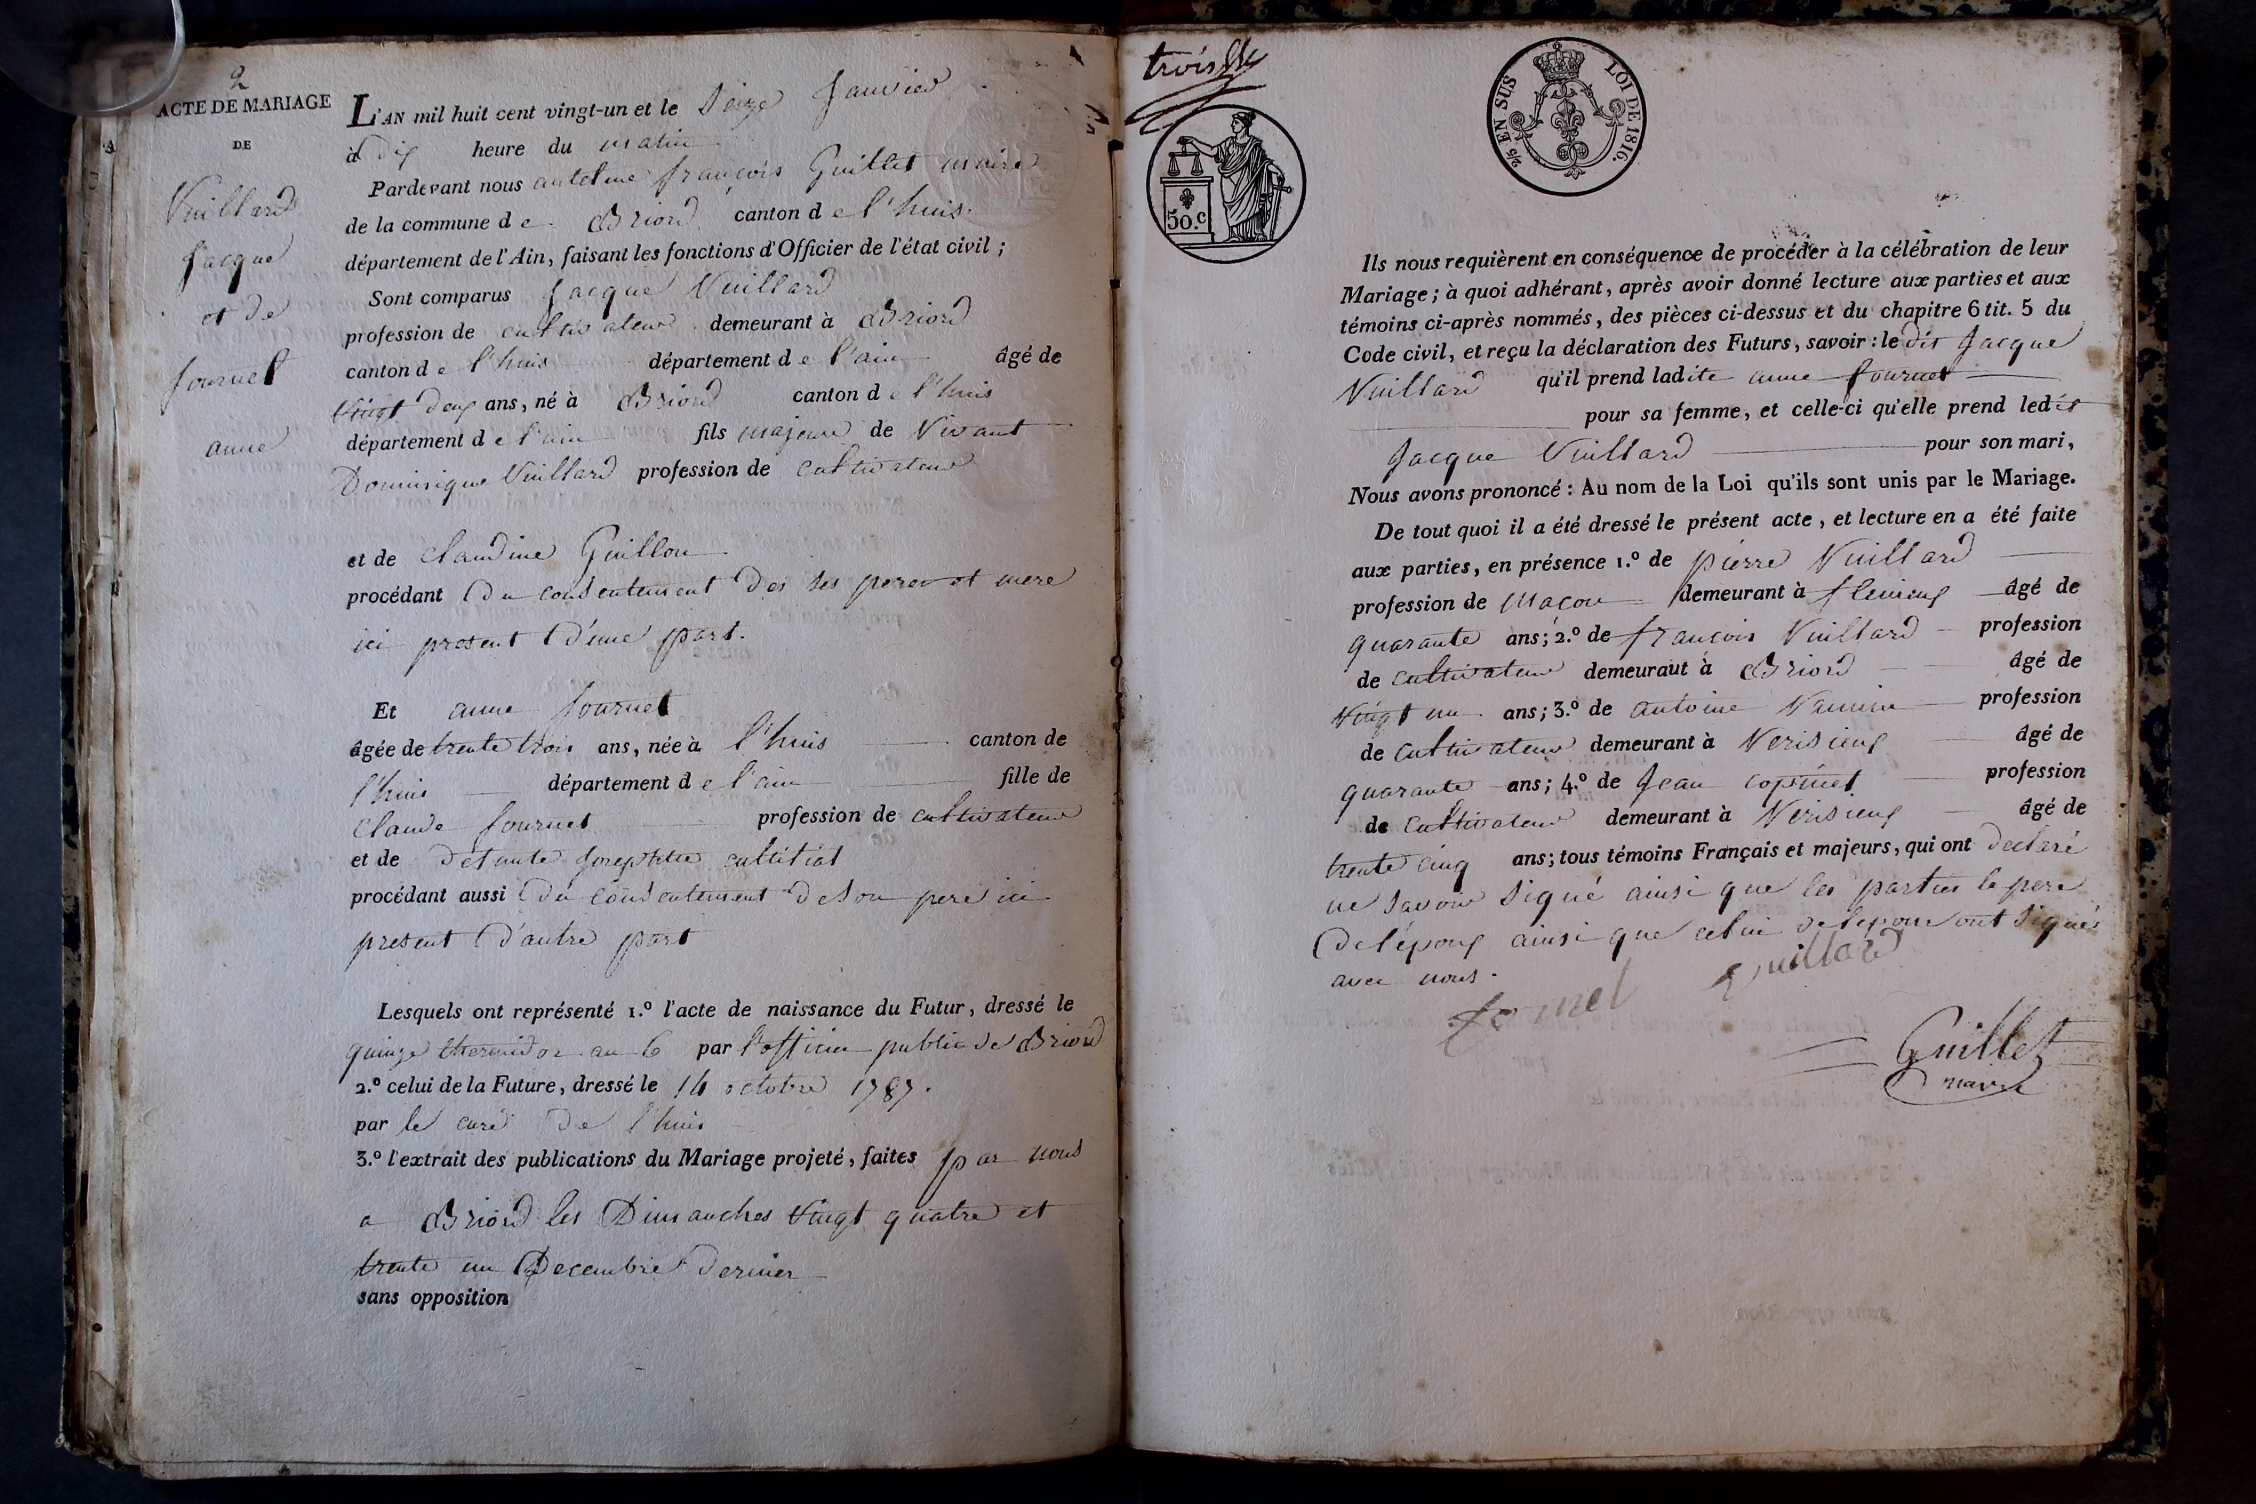 2
ACTE DE MARIAGE
DE
Vuillard
Jacque
et de
fournet
anne
L'AN mil huit cent vingt-un et le Seize Janvier
à dix heure du matin
Pardevant nous antelme françois Guillet maire
de la commune de Briord canton de l'huis.
département de l'Ain, faisant les fonctions d'Officier de l'état civil ;
Sont comparus Jacque Vuillard
profession de cultivateur demeurant à Briord
canton de l'huis département de l'ain âgé de
vingt deux ans, né à Briord canton de l'huis
département de l'ain fils majeur de Vivant
Dominique Vuillard profession de cultivateur
et de claudine Guillon
procédant du consentement des ses perer et mere
ici present d'une part.
Et anne fournet
âgée de trente trois ans, née à l'huis canton de
l'huis département de l'ain fille de
claude fournet profession de cultivateur
et de defunte josephtte
procédant aussi du consentement de son pere ici
present d'autre part
Lesquels ont représenté 1.º l'acte de naissance du Futur, dressé le
quinze thermidor an 6 par l'officier public de Briord
2.º celui de la Future, dressé le 14 octobre 1787.
par le curé de l'huis
3.º l'extrait des publications du Mariage projeté, faites par nous
a Briord les Dimanches vingt quatre et
trente un Decembre dernier
sans opposition
trois
50.c
2/5 EN SUS LOI DE 1816.
Ils nous requièrent en conséquence de procéder à la célébration de leur
Mariage ; à quoi adhérant, après avoir donné lecture aux parties et aux
témoins ci-après nommés, des pièces ci-dessus et du chapitre 6 tit. 5 du
Code civil, et reçu la déclaration des Futurs, savoir : le dit Jacque
Vuillard qu'il prend ladite anne fournet
pour sa femme, et celle-ci qu'elle prend ledit
Jacque Vuillard pour son mari,
Nous avons prononcé : Au nom de la Loi qu'ils sont unis par le Mariage.
De tout quoi il a été dressé le présent acte, et lecture en a été faite
aux parties, en présence 1.º de pierre Vuillard
profession de maçon demeurant à flevieux âgé de
quarante ans ; 2.º de françois Vuillard profession
de cultivateur demeurant à Briord âgé de
vingt un ans ; 3.º de antoine profession
de cultivateur demeurant à Verisieux âgé de
quarante ans ; 4.º de Jean profession
de cultivateur demeurant à Verisieux âgé de
trente cinq ans ; tous témoins Français et majeurs, qui ont declaré
ne savoir signé ainsi que les parties le pere
de l'époux ainsi que celui de l'epouse ont signés
avec nous.
fornel Vuillard
Guillet
maire